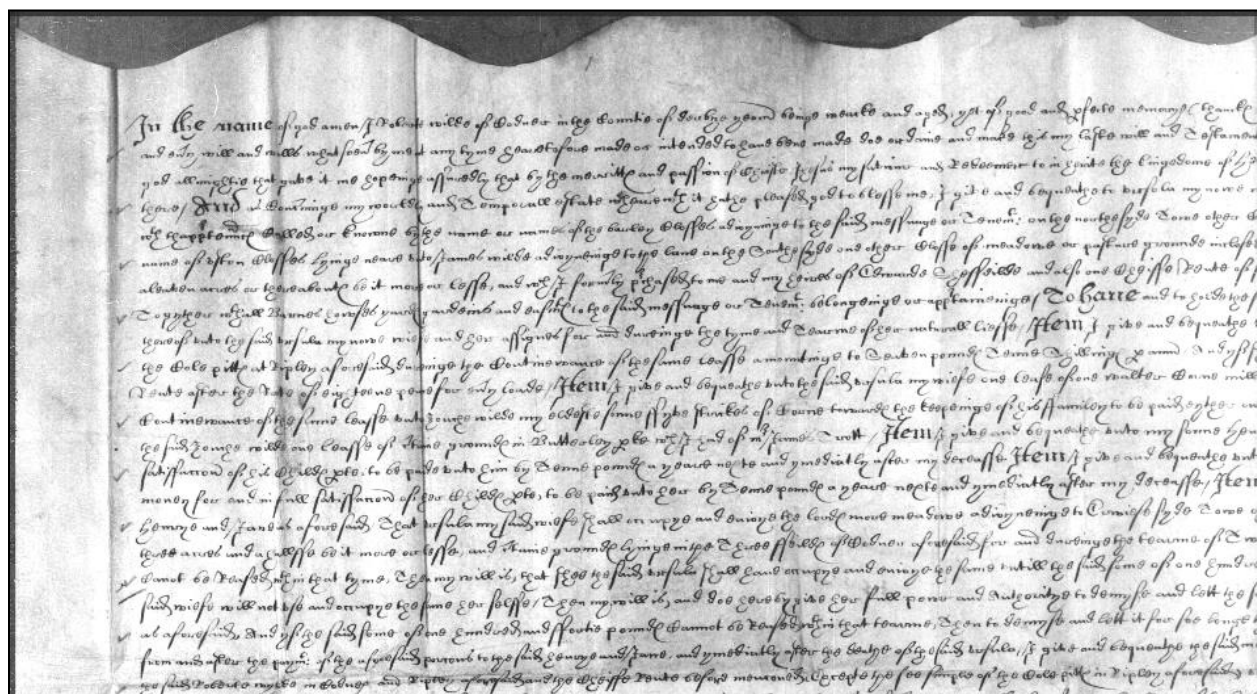 In the name of god amen / I Roberte wilde of Codner in the Countie of derbye yeom beinge weake and aged, yet of good and pfecte memorye (thanck
and evy will and wills whatsoevr by me at any tyme heretofore made or intended to have bene made doe ordaine and make this my laste will and Testamen
god allmightie that gave it me hopeinge assuredly that by the merritts and passion of Christe Jhesus my saviour and Redeemer to inherite the kingdome of He
there / And as Concninge my worldly and Temporall estate wherewth it hathe pleased god to blesse me, I give and bequeathe to ursula my nowe
wth thapptennces Called or knowne by the name or names of the barley Closses adioyninge to the said messuage or Tenemt on the northe syde Towe other
name of Closses lyinge neare unto James wilde adioyneinge to the lane on the Southe syde one other Closse of meadowe or pasture grounde inclose
aleaven acres or thereabouts be it more or lesse, and wch I formly pchased to me and my heires of Edwarde Theffeilde and also one Cheiffe Rente of
Togyther wth all Barnes howses yards gardeins and easmts to the said messuage or Tenemt belongeinge or apptaineinge / To have and to holde the
thereof unto the said ursula my nowe wief and her assignes for and dureinge the tyme and Tearme of her naturall lieffe / Item I give and bequeathe
the Cole pitts at Ripley aforesaid dureinge the Contineweance of the same leasse amountinge to Seaven pounds Tenne Shillings p annu And yf
Rente after the Rate of eighteene pence for evy loade / Item I give and bequeathe unto the said ursula my wiefe one lease of one walter Corne mill
Contineweance of the same leasse unto my eldeste sonne ffyve strikes of Corne towards the keepeinge of his ffamiley to be paid eyther
the said wilde one leasse of grounds in Butterley pke wch I had of mr James / Item I give and bequeathe unto my sonne Hen
satisfaccon of his Childes pte, to be paide unto him by Tenne pounds a yeare nexte and ymediatly after my deceasse Item I give and bequeathe unt
money for and in full satisfaccon of her Childes pte, to be paid unto her by Tenne pounds a yeare nexte and ymediatly after my deceasse / Item
Henrye and Jane as aforesaid. That ursula my said wiefe shall occupye and enioye the lords more meadowe adioyneinge to syde Towe
three acres and a halffe be it more or lesse, and grounds lyinge in the Three ffeilds of Codner aforesaid for and dureinge the tearme of
Cannot be Reased wthin that tyme, Then my will is, that shee the said ursula shall have occupye and enioye the same untill the said some of one hundre
said wiefe will not use and occupye the same her selffe / Then my will is, and doe hereby give her full power and Authoritye to demyse and lett the
as aforesaid, And yf the said some of one hundred and ffortie pounds Cannot be Reased wthin that tearme, Then to demyse and lett it for soe longe
from and after the paymt of the aforesaid porcons to the said henrye and Jane, and ymediatly after the deathe of the said ursula, I give and bequeathe the said
the said Roberte wylde in Codner and Ripley aforesaid and the Cheiffe Rente before menconed (Excepte the fee simple of the Cole pitts in Ripley aforesaid